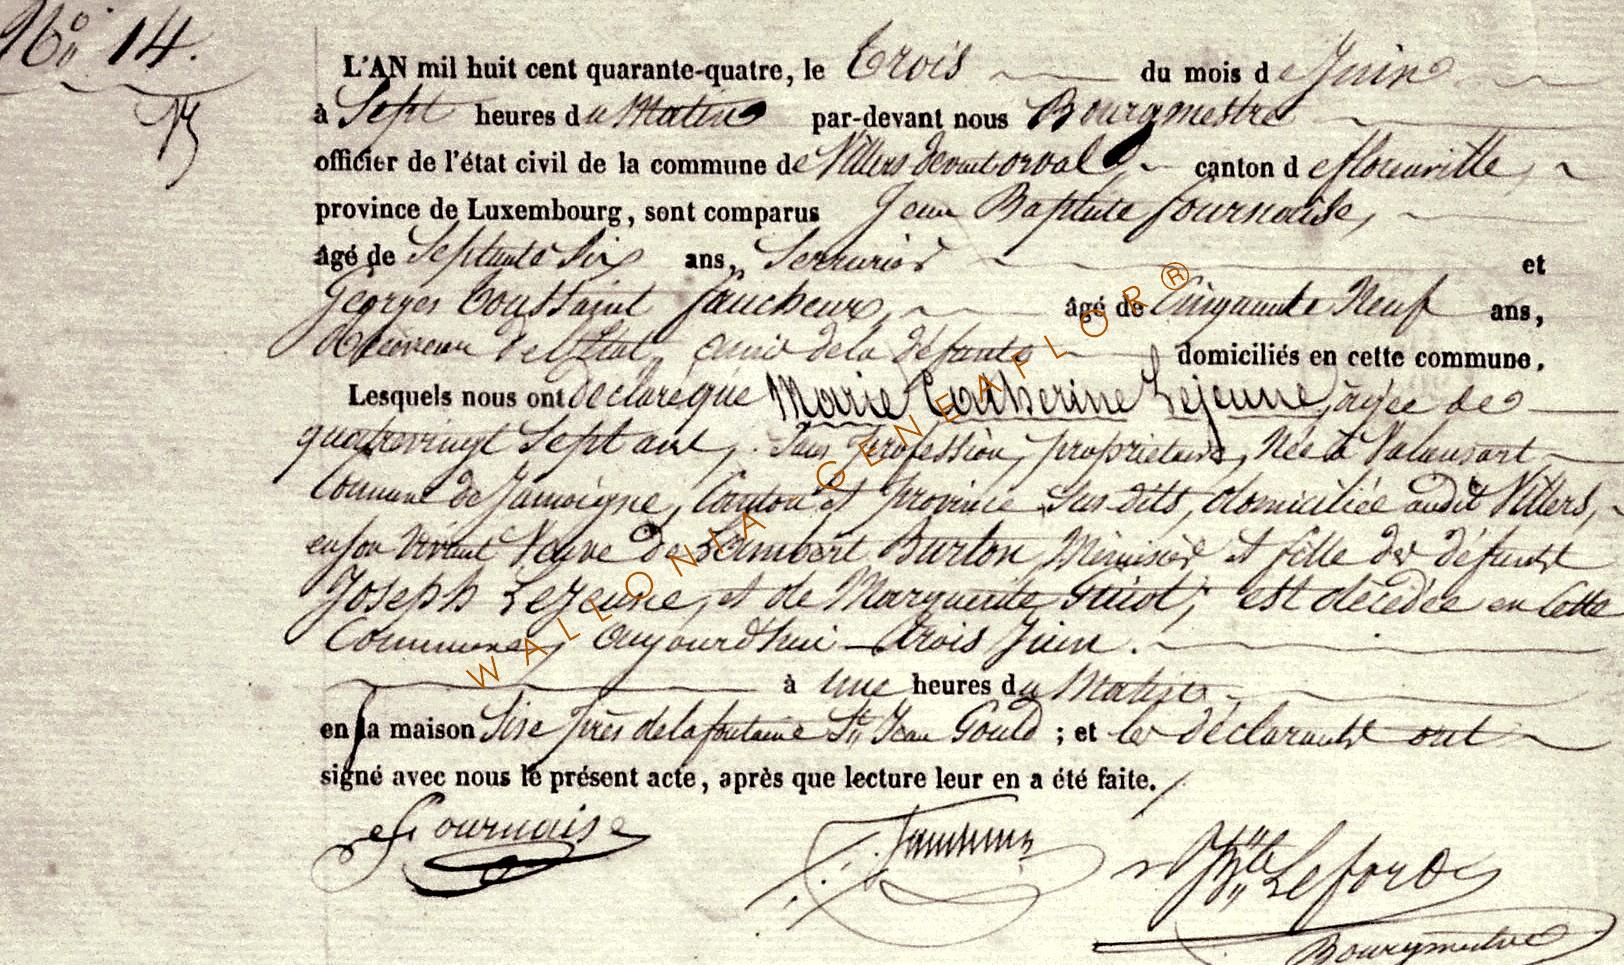 No 14.
L'AN mil huit cent quarante-quatre, le trois du mois de Juin
à Sept heures du Matin par-devant nous Bourgmestre
officier de l'état civil de la commune de Villers devant orval, canton de florenville,
province de Luxembourg, sont comparus Jean Baptiste fournaise,
âgé de Septante Six ans, Serrurier et
Georges Toussaint faucheux, âgé de Cinquante Neuf ans,
Receveur de l'Etat, amis de la défunte domiciliés en cette commune.
Lesquels nous ont déclaré que Marie Catherine Lejeune, âgée de
quatrevingt Sept ans, Sans Profession, propriétaire, Née à Valensart
Commune de Jamoigne, Canton et province Sus dits, domiciliée audit Villers,
en son vivant Veuve de Lambert Burton, Menuisier et fille des défunts
Joseph Lejeune, et de Marguerite Guiot, est décédée en Cette
Commune, aujourd'hui trois Juin.
à une heures du Matin,
en la maison Sise près de la fontaine St Jean Gould ; et les déclarants ont
signé avec nous le présent acte, après que lecture leur en a été faite.
Fournaise
Faucheux
JBte Leford
Bourgmestre
WALLONIA GENEAFLOR®